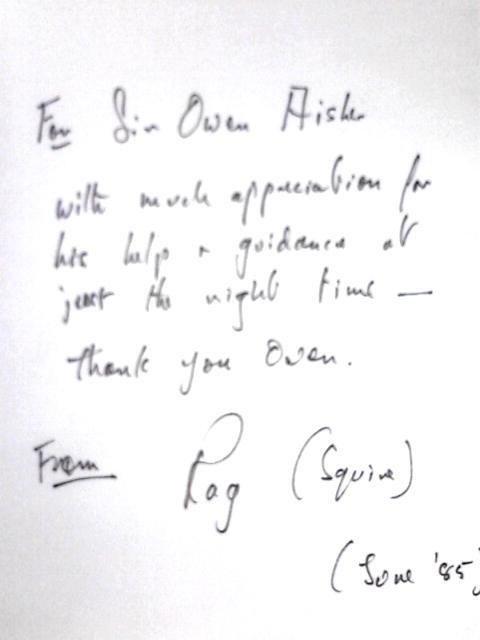 For Sir Owen Aisher
with much appreciation for
his help & guidance at
just the right time —
thank you Owen.
From Rag (Squire)
(June '85)